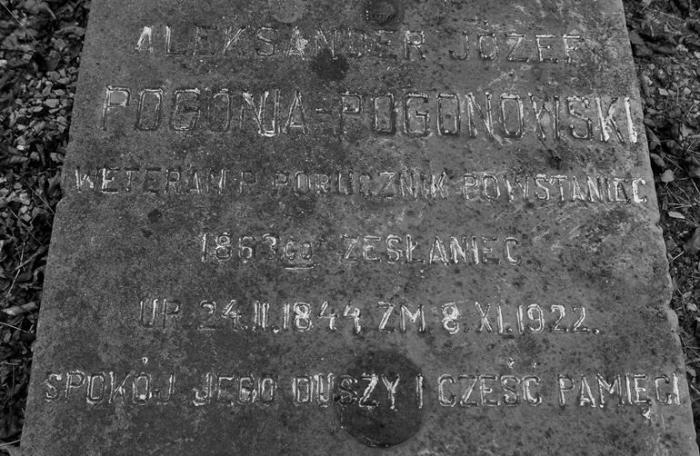 ALEKSANDER JÓZEF
POGONIA-POGONOWSKI
WETERAN P. PORUCZNIK POWSTANIEC
1863go ZESŁANIEC
UR. 24.II.1844 ZM 8 XI.1922.
SPOKÓJ JEGO DUSZY I CZEŚĆ PAMIĘCI